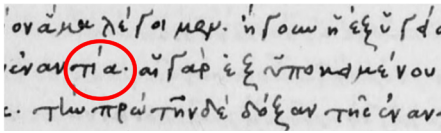 ὀνόματα λέγοιμεν. ἤγουν ἢ ἐξ ὑ
ἐναντία· αἱ γὰρ ἐξ ὑποκειμένου
τὴν πρώτην δὲ δόξαν τῆς ἐναν